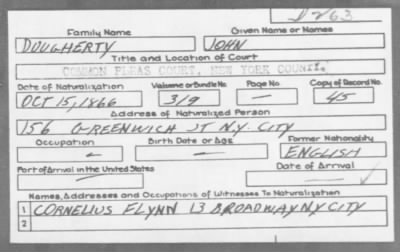 D263
Family Name Given Name or Names
DOUGHERTY JOHN
Title and Location of Court
COMMON PLEAS COURT, NEW YORK COUNTY.
Date of Naturalization Volume or Bundle No. Page No. Copy of Record No.
OCT 15, 1866 319 — 45
Address of Naturalized Person
156 GREENWICH ST N.Y. CITY
Occupation Birth Date or Age Former Nationality
— — ENGLISH
Port of Arrival in the United States Date of Arrival
Names, Addresses and Occupations of Witnesses To Naturalization
1 CORNELIUS FLYNN 13 BROADWAY NY CITY
2